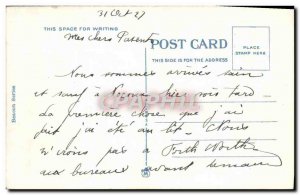 31 Oct 27
THIS SPACE FOR WRITING
Mes chers Parents
POST CARD
THIS SIDE IS FOR THE ADDRESS
PLACE
STAMP HERE
Nous sommes arrivés sain
et sauf à hier soir tard
La première chose que j'ai
fait j'ai été au lit. Nous
n'irons pas à Forth Worth
aux bureaux avant demain